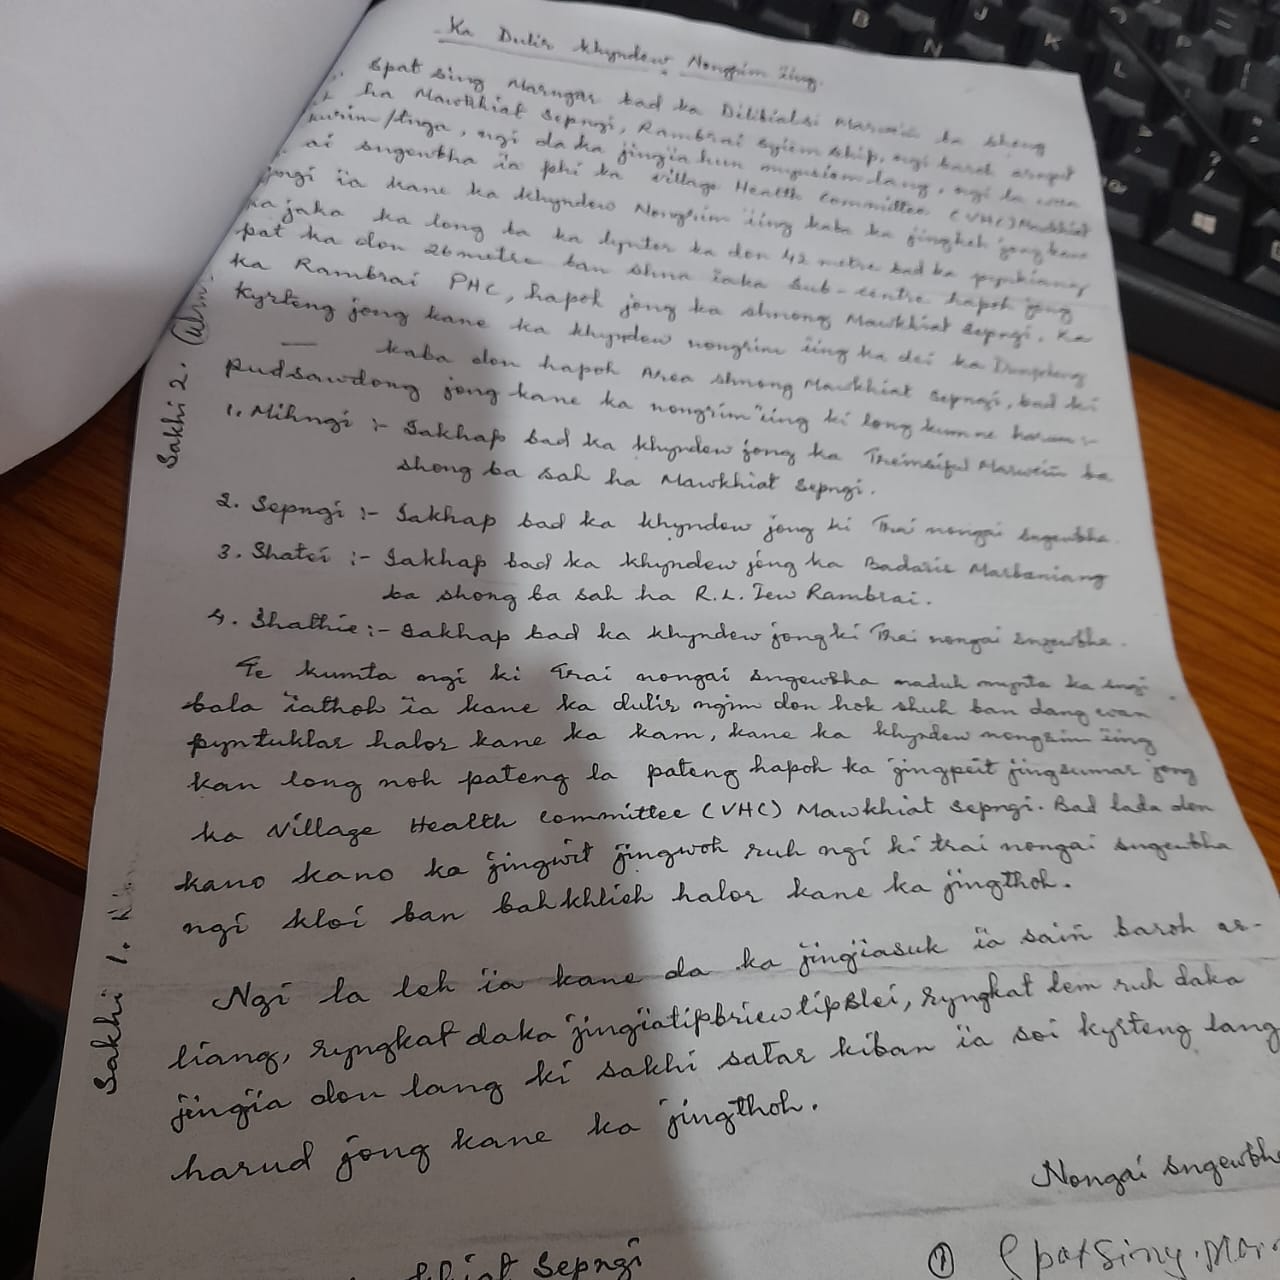 Ka Dulir Khyndew Nongrim ïing.
Spat Sing Marngar bad ka Dilibialsi Marwein ba shong
ha Mawkhiat Sepngi, Rambrai Syiem ship, ngi baroh arngut
kurim/tnga, ngi da ka jingïa hun mynsiem lang, ngi la wan
ai sngewbha ïa phi ka Village Health Committee (VHC) Mawkhiat
ïa kane ka khyndew Nongrim ïing kaba ka jingheh jong kane
ka jaka ka long ba ka ka don 42 metre bad ka
pat ka don 26 metre ban shna ïaka Sub-centre hapoh jong
ka Rambrai PHC, hapoh jong ka shnong Mawkhiat Sepngi. Ka
Kyrteng jong kane ka khyndew nongrim ïing ka dei ka
kaba don hapoh Area shnong Mawkhiat Sepngi, bad ki
pudsawdong jong kane ka nongrim ïing ki long kumne harum :-
1. Mihngi :- Sakhap bad ka khyndew jong ka Marwein ba
shong ba sah ha Mawkhiat Sepngi.
2. Sepngi :- Sakhap bad ka khyndew jong ki Trai nongai sngewbha.
3. Shatei :- Sakhap bad ka khyndew jong ka Badaris Marbaniang
ba shong ba sah ha R.L. Iew Rambrai.
4. Shathie :- Sakhap bad ka khyndew jong ki Trai nongai sngewbha.
Te kumta ngi ki Trai nongai sngewbha naduh mynta ka sngi
bala ïathoh ïa kane ka dulir ngim don hok shuh ban dang wan
pyntuklar halor kane ka kam, kane ka khyndew nongrim ïing
kan long noh pateng la pateng hapoh ka jingpeit jingsumar jong
ka Village Health Committee (VHC) Mawkhiat Sepngi. Bad lada don
kano kano ka jingwit jingwoh ruh ngi ki trai nongai sngewbha
ngi kloi ban bah khlieh halor kane ka jingthoh.
Ngi la leh ïa kane da ka jingïasuk ïa saiñ baroh ar-
liang, ryngkat daka jingïatipbriew tipblei, ryngkat lem ruh daka
jingïa don lang ki sakhi satar kiban ïa soi kyrteng lang
harud jong kane ka jingthoh.
Nongai sngewbha
① Spat Sing. Mar
Sepngi
Sakhi 2.
Sakhi 1.